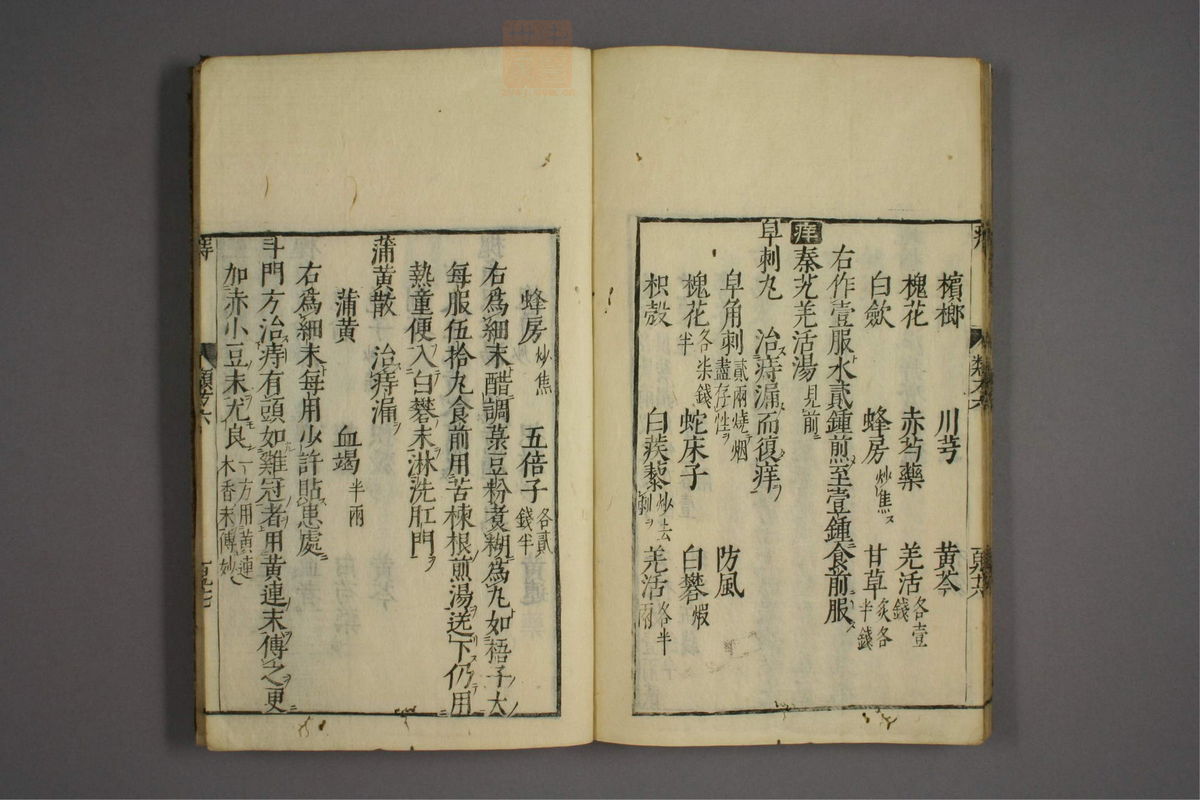 檳榔 川芎 黄芩
槐花 赤芍藥 羌活各壹錢
白歛 蜂房炒焦ス 甘草炙各半錢
右作壹服水貳鍾煎至壹鍾食前服
痒 秦艽羌活湯見前
皁刺丸 治痔漏而復痒
皁角刺貳兩燒烟盡存性 防風
槐花各柒錢半 蛇床子 白礬煆
枳殼 白蒺藜炒去刺 羌活各半兩
類方六
蜂房炒焦 五倍子各貳錢半
右爲細末醋調菉豆粉煮糊爲丸如梧子大
每服伍拾丸食前用苦楝根煎湯送下仍用
熱童便入白礬末淋洗肛門
蒲黄散 治痔漏
蒲黄 血竭半兩
右爲細末每用少許貼患處
斗門方治痔有頭如雞冠者用黄連末傅之更
加赤小豆末尤良一方用黄連木香末傅妙
類方六